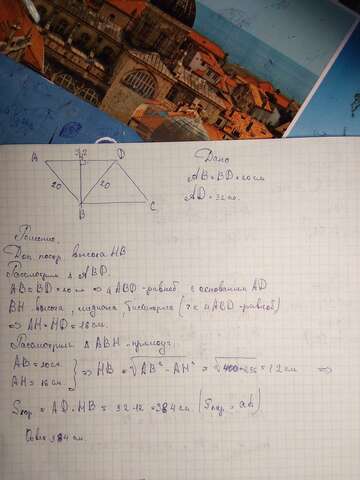 32
A D
20 20
B C
Дано
AB=BD=20см
AD=32см.
Решение.
Доп. постр. высота HB
Рассмотрим △ ABD.
AB=BD=20см ⇒ △ABD-равноб с основанием AD
BH высота, медиана, биссектриса (т.к △ABD-равноб)
⇒ AH=HD=16см.
Рассмотрим △ ABH-прямоуг.
AB=20см
AH=16см } ⇒ HB = √AB²-AH² = √400-256 = 12см ⇒
Sпар = AD·HB = 32·12=384см. (Sпар.=ah)
Ответ 384см.